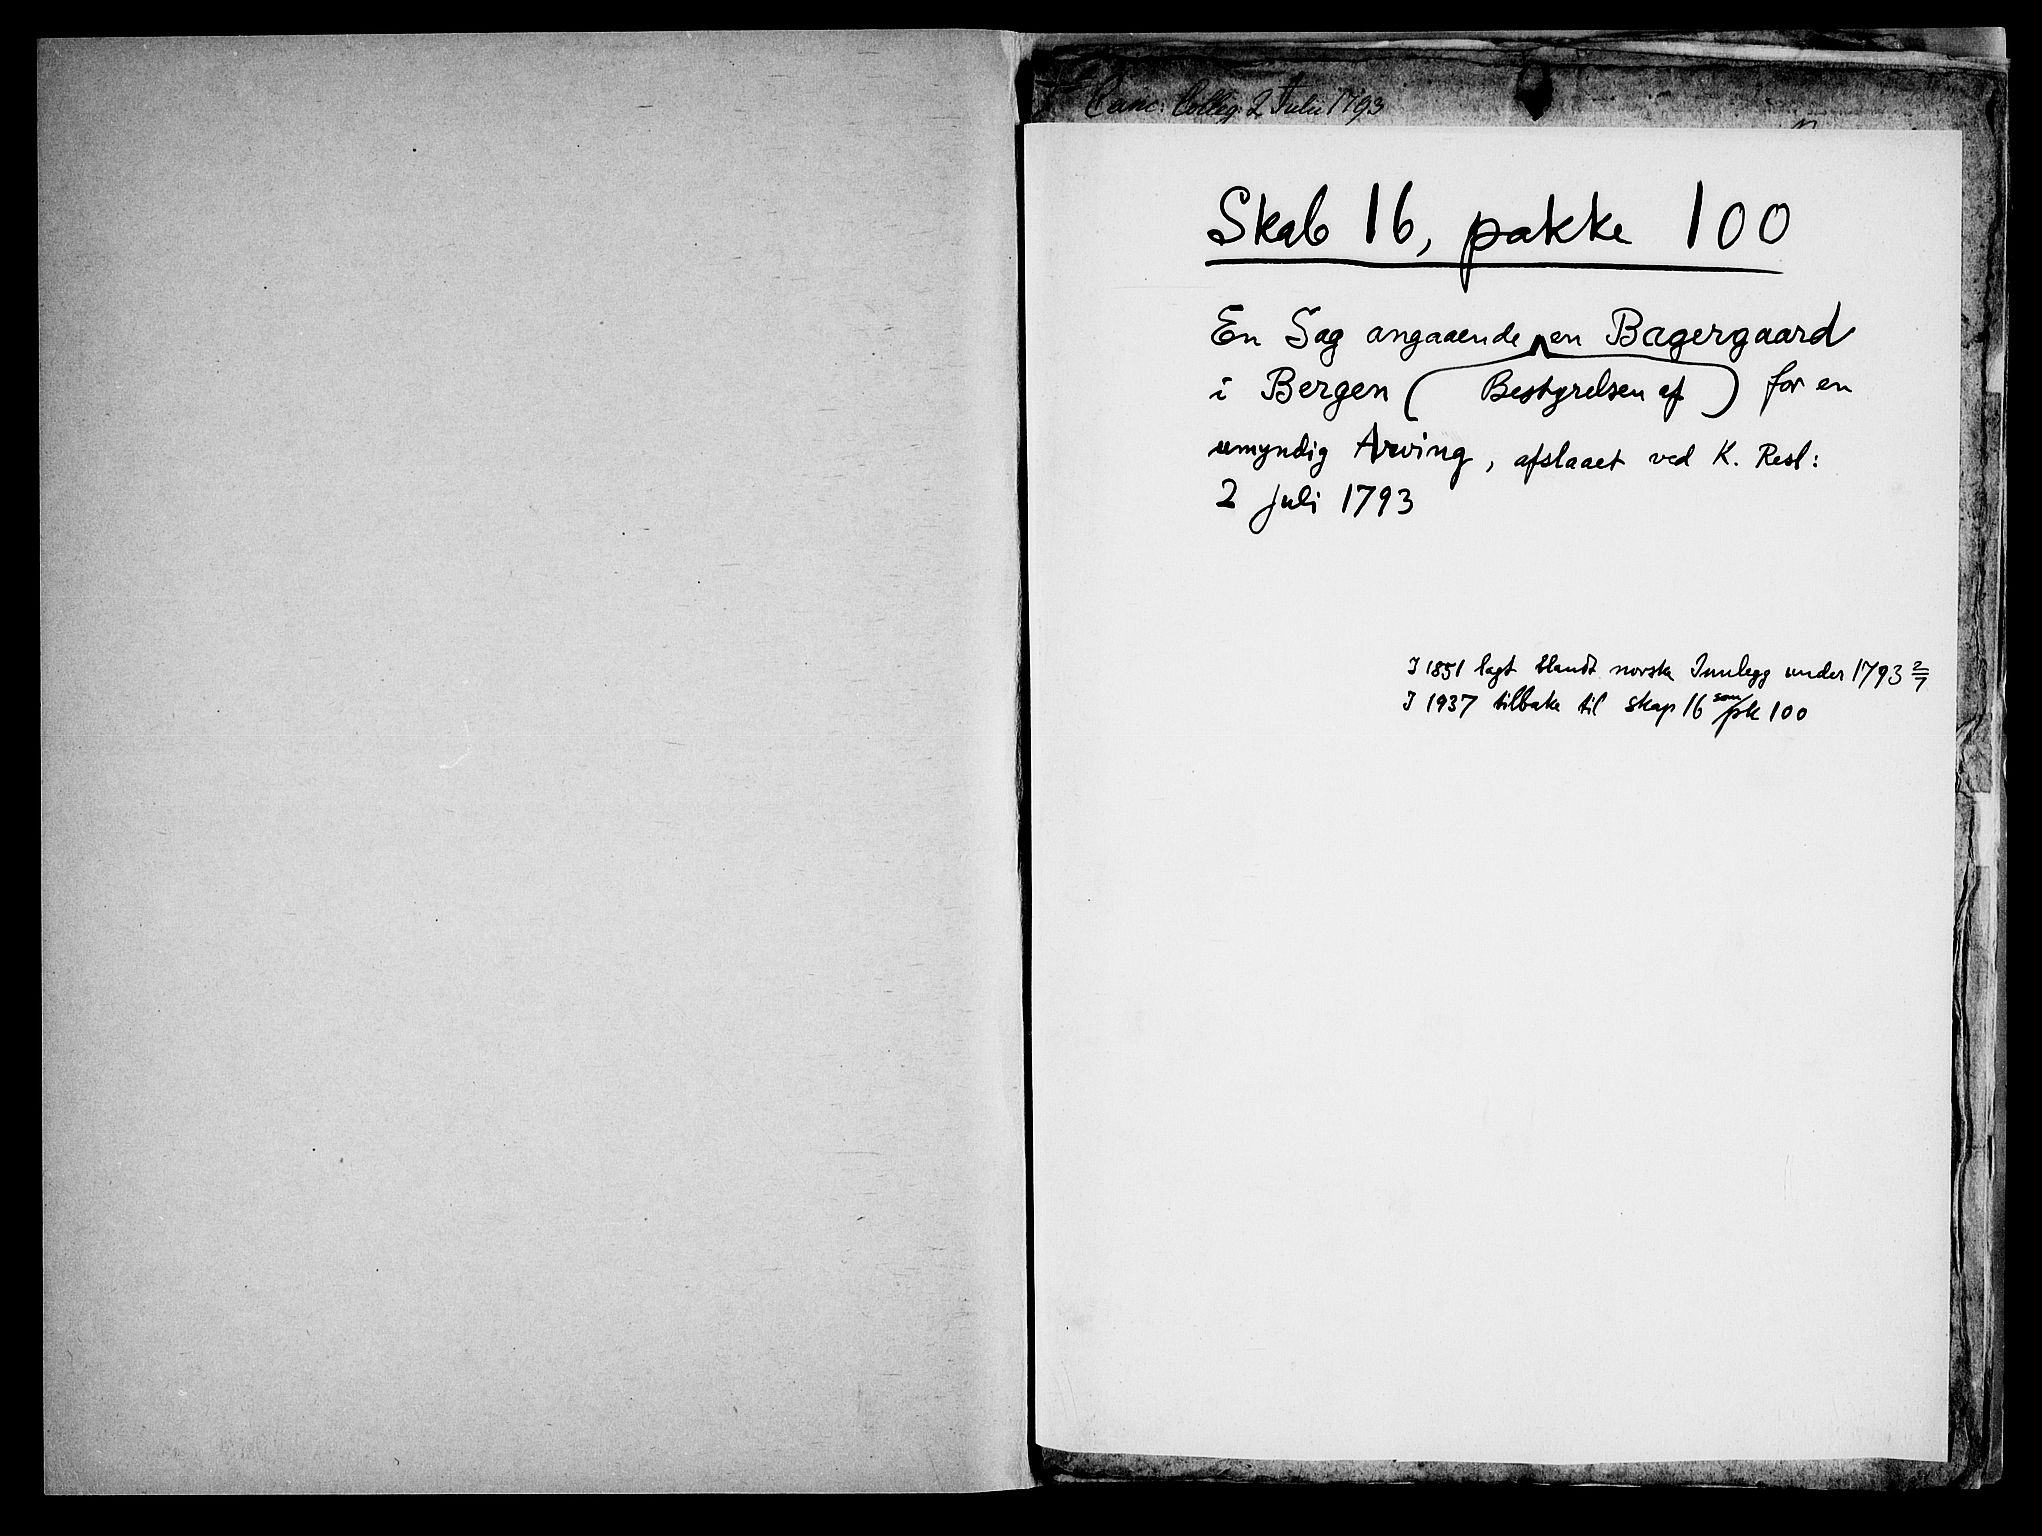 Canc: Colleg: 2 Julii 1793
Skab 16, pakke 100
En Sag angaaende en Bagergaard
i Bergen ( Bestyrelsen af ) for en
umyndig Arving, afslaaet ved K. Resl:
2 juli 1793
I 1851 lagt blandt norske Innlegg under 1793 2/7
I 1937 tilbake til skap 16 som pk 100